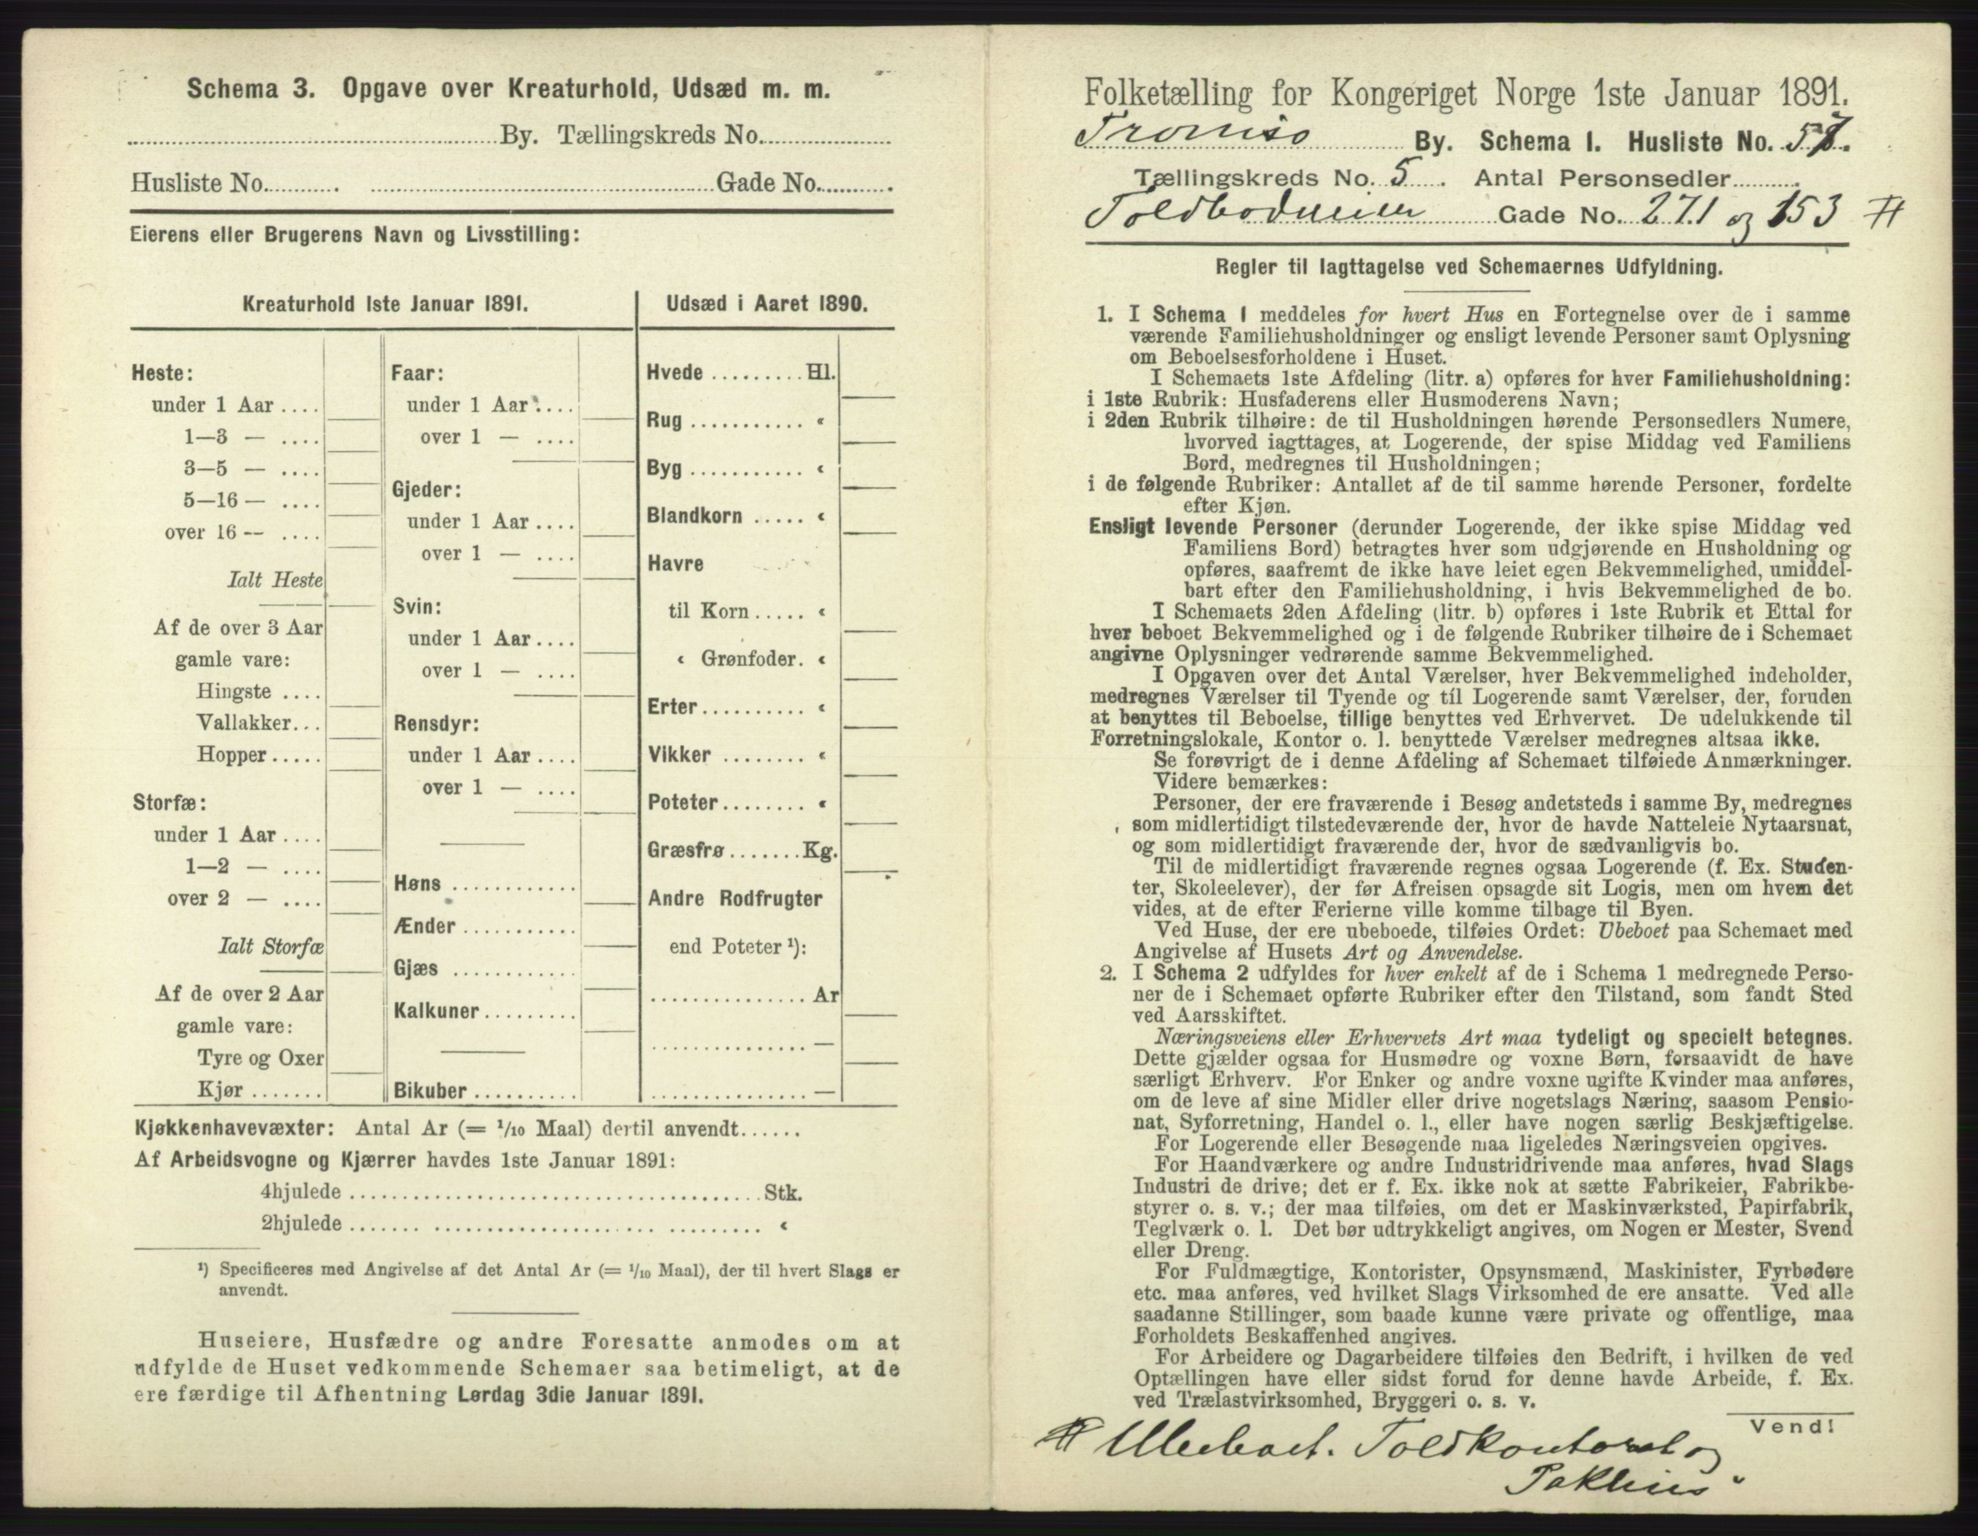 Schema 3. Opgave over Kreaturhold, Udsæd m. m.
By. Tællingskreds No.
Husliste No. Gade No.
Eierens eller Brugerens Navn og Livsstilling:
Kreaturhold 1ste Januar 1891.
Heste:
under 1 Aar
1—3 —
3—5 —
5—16 —
over 16 —
Ialt Heste
Af de over 3 Aar
gamle vare:
Hingste
Vallakker
Hopper
Storfæ:
under 1 Aar
1—2 —
over 2 —
Ialt Storfæ
Af de over 2 Aar
gamle vare:
Tyre og Oxer
Kjør
Faar:
under 1 Aar
over 1 —
Gjeder:
under 1 Aar
over 1 —
Svin:
under 1 Aar
over 1 —
Rensdyr:
under 1 Aar
over 1 —
Høns
Ænder
Gjæs
Kalkuner
Bikuber
Udsæd i Aaret 1890.
Hvede Hl.
Rug «
Byg «
Blandkorn «
Havre
til Korn «
« Grønfoder. «
Erter «
Vikker «
Poteter «
Græsfrø Kg.
Andre Rodfrugter
end Poteter ¹):
Ar
—
—
Kjøkkenhavevæxter: Antal Ar (= 1/10 Maal) dertil anvendt
Af Arbeidsvogne og Kjærrer havdes 1ste Januar 1891:
4hjulede Stk.
2hjulede «
¹) Specificeres med Angivelse af det Antal Ar (= 1/10 Maal), der til hvert Slags er
anvendt.
Huseiere, Husfædre og andre Foresatte anmodes om at
udfylde de Huset vedkommende Schemaer saa betimeligt, at de
ere færdige til Afhentning Lørdag 3die Januar 1891.
Folketælling for Kongeriget Norge 1ste Januar 1891.
Tromsø By. Schema 1. Husliste No. 57.
Tællingskreds No. 5. Antal Personsedler
Gade No. 271 og 153 #
Regler til Iagttagelse ved Schemaernes Udfyldning.
1. I Schema 1 meddeles for hvert Hus en Fortegnelse over de i samme
værende Familiehusholdninger og ensligt levende Personer samt Oplysning
om Beboelsesforholdene i Huset.
I Schemaets 1ste Afdeling (litr. a) opføres for hver Familiehusholdning:
i 1ste Rubrik: Husfaderens eller Husmoderens Navn;
i 2den Rubrik tilhøire: de til Husholdningen hørende Personsedlers Numere,
hvorved iagttages, at Logerende, der spise Middag ved Familiens
Bord, medregnes til Husholdningen;
i de følgende Rubriker: Antallet af de til samme hørende Personer, fordelte
efter Kjøn.
Ensligt levende Personer (derunder Logerende, der ikke spise Middag ved
Familiens Bord) betragtes hver som udgjørende en Husholdning og
opføres, saafremt de ikke have leiet egen Bekvemmelighed, umiddel-
bart efter den Familiehusholdning, i hvis Bekvemmelighed de bo.
I Schemaets 2den Afdeling (litr. b) opføres i 1ste Rubrik et Ettal for
hver beboet Bekvemmelighed og i de følgende Rubriker tilhøire de i Schemaet
angivne Oplysninger vedrørende samme Bekvemmelighed.
I Opgaven over det Antal Værelser, hver Bekvemmelighed indeholder,
medregnes Værelser til Tyende og til Logerende samt Værelser, der, foruden
at benyttes til Beboelse, tillige benyttes ved Erhvervet. De udelukkende til
Forretningslokale, Kontor o. l. benyttede Værelser medregnes altsaa ikke.
Se forøvrigt de i denne Afdeling af Schemaet tilføiede Anmærkninger.
Videre bemærkes:
Personer, der ere fraværende i Besøg andetsteds i samme By, medregnes
som midlertidigt tilstedeværende der, hvor de havde Natteleie Nytaarsnat,
og som midlertidigt fraværende der, hvor de sædvanligvis bo.
Til de midlertidigt fraværende regnes ogsaa Logerende (f. Ex. Studen-
ter, Skoleelever), der før Afreisen opsagde sit Logis, men om hvem det
vides, at de efter Ferierne ville komme tilbage til Byen.
Ved Huse, der ere ubeboede, tilføies Ordet: Ubeboet paa Schemaet med
Angivelse af Husets Art og Anvendelse.
2. I Schema 2 udfyldes for hver enkelt af de i Schema 1 medregnede Perso-
ner de i Schemaet opførte Rubriker efter den Tilstand, som fandt Sted
ved Aarsskiftet.
Næringsveiens eller Erhvervets Art maa tydeligt og specielt betegnes.
Dette gjælder ogsaa for Husmødre og voxne Børn, forsaavidt de have
særligt Erhverv. For Enker og andre voxne ugifte Kvinder maa anføres,
om de leve af sine Midler eller drive nogetslags Næring, saasom Pensio-
nat, Syforretning, Handel o. l., eller have nogen særlig Beskjæftigelse.
For Logerende eller Besøgende maa ligeledes Næringsveien opgives.
For Haandværkere og andre Industridrivende maa anføres, hvad Slags
Industri de drive; det er f. Ex. ikke nok at sætte Fabrikeier, Fabrikbe-
styrer o. s. v.; der maa tilføies, om det er Maskinværksted, Papirfabrik,
Teglværk o. l. Det bør udtrykkeligt angives, om Nogen er Mester, Svend
eller Dreng.
For Fuldmægtige, Kontorister, Opsynsmænd, Maskinister, Fyrbødere
etc. maa anføres, ved hvilket Slags Virksomhed de ere ansatte. Ved alle
saadanne Stillinger, som baade kunne være private og offentlige, maa
Forholdets Beskaffenhed angives.
For Arbeidere og Dagarbeidere tilføies den Bedrift, i hvilken de ved
Optællingen have eller sidst forud for denne havde Arbeide, f. Ex.
ved Trælastvirksomhed, Bryggeri o. s. v.
Vend!
# Ubeboet. Toldkontoret og
Pakhus